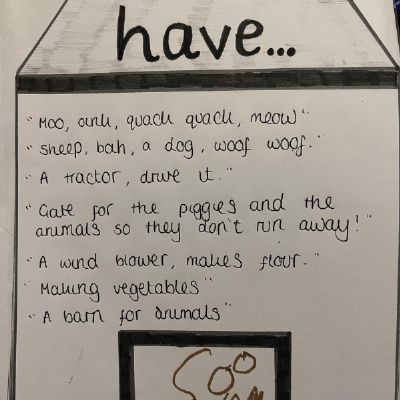 have...
"Moo, oink, quack quack, meow"
"Sheep, bah, a dog, woof woof."
"A tractor, drive it."
"Gate for the piggies and the
animals so they don't run away!"
"A wind blower, makes flour."
"Making vegetables"
"A barn for animals"